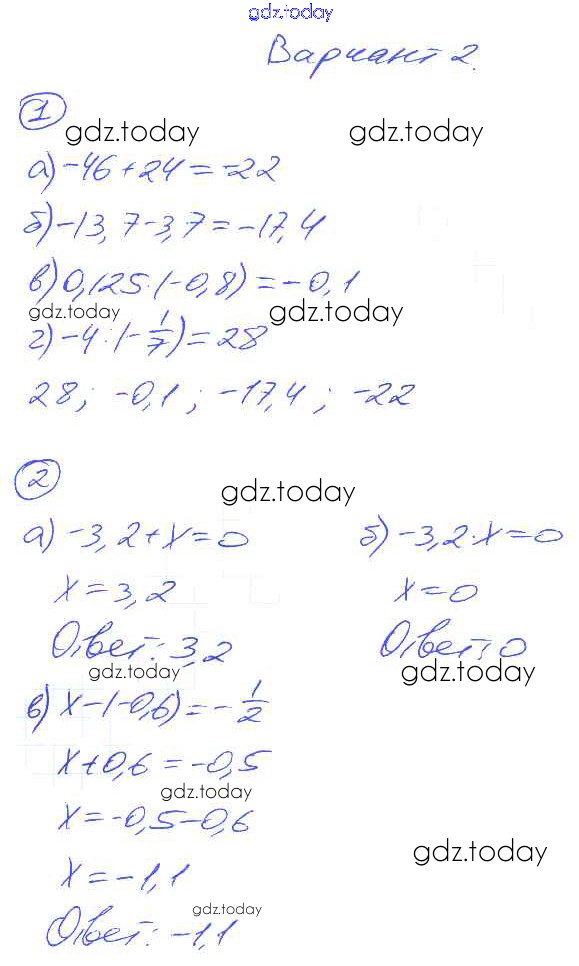 gdz.today
Вариант 2.
1
gdz.today gdz.today
а) -46+24=-22
б) -13,7-3,7=-17,4
в) 0,125·(-0,8)=-0,1
gdz.today gdz.today
г) -4:(-1/7)=28
28; -0,1; -17,4; -22
2
gdz.today
а) -3,2+x=0 б) -3,2·x=0
x=3,2 x=0
Ответ: 3,2 Ответ: 0
gdz.today gdz.today
в) x-(-0,6)=-1/2
x+0,6=-0,5
gdz.today
x=-0,5-0,6
gdz.today
x=-1,1
gdz.today
Ответ: -1,1